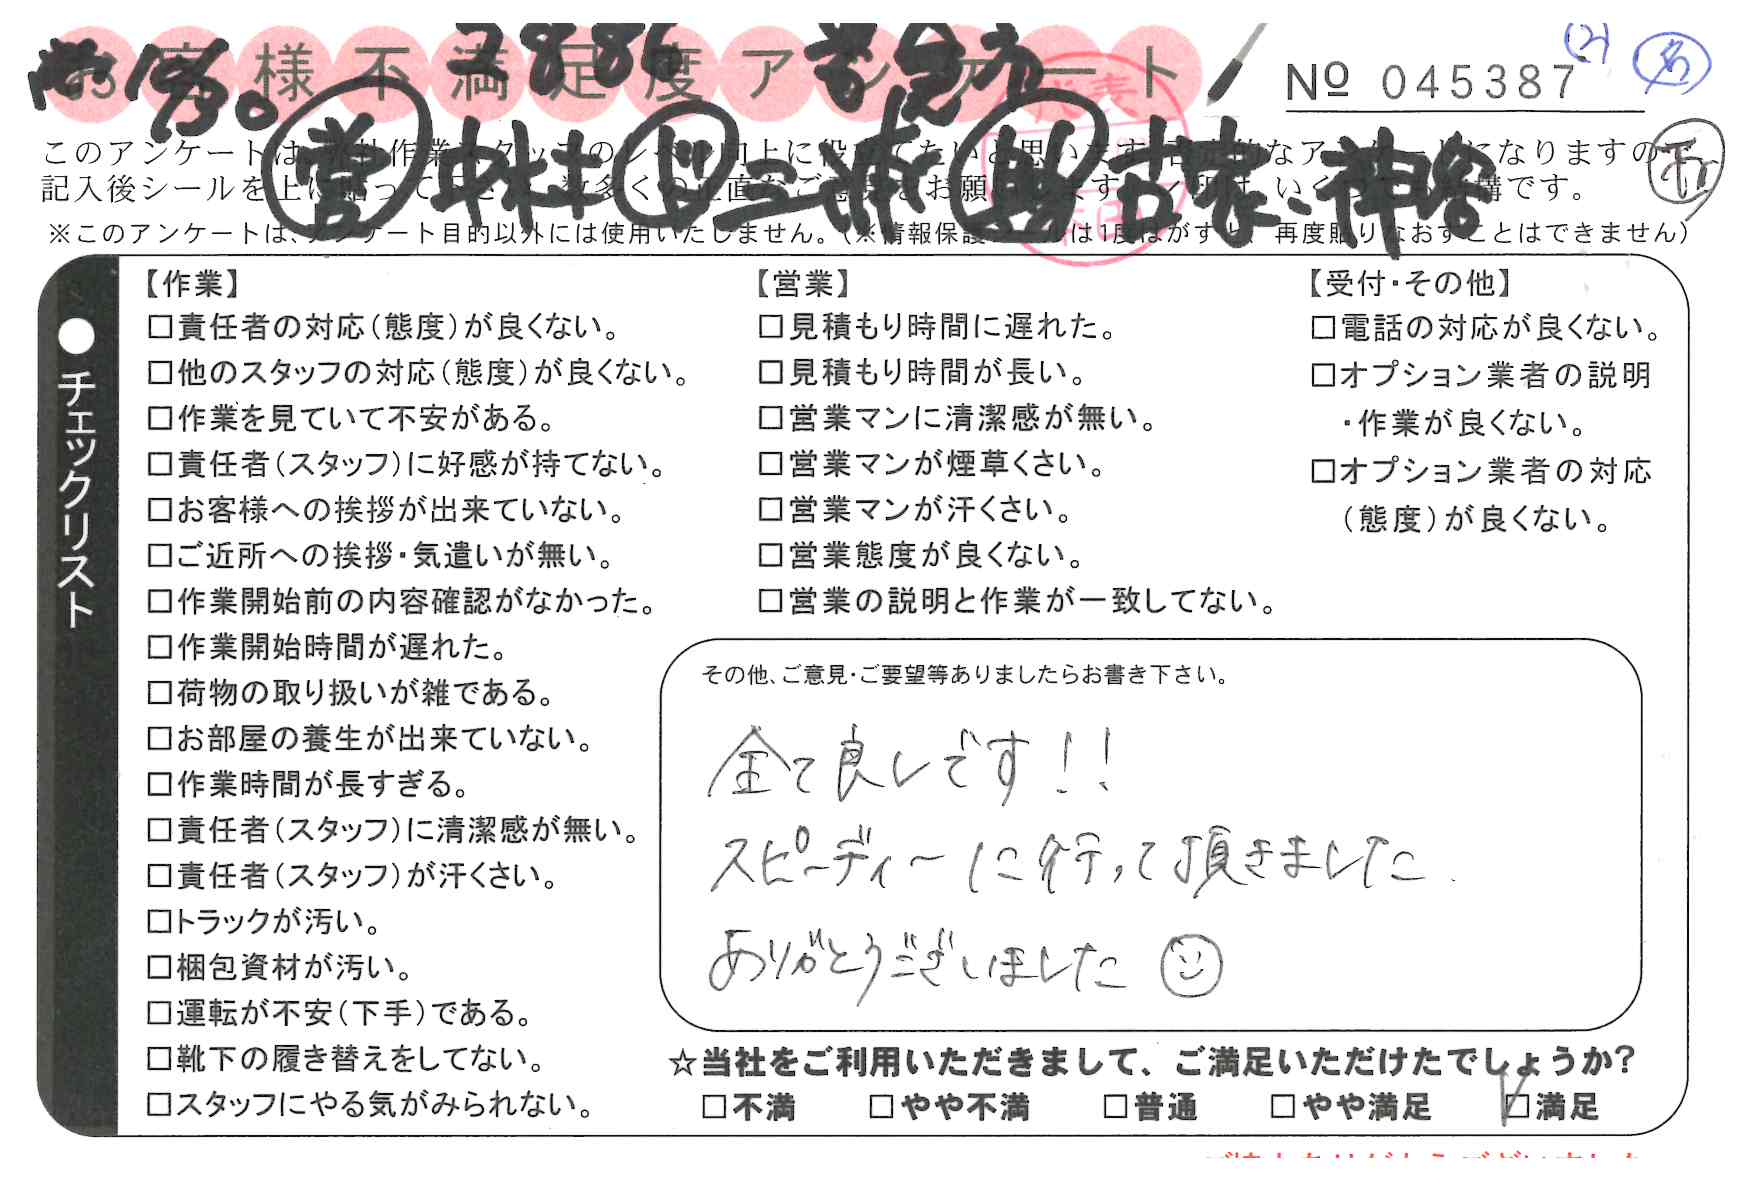 お客様不満足度アンケート
No 045387
このアンケートは
記入後シールを上に
※このアンケートは、アンケート目的以外には使用いたしません。(※情報保護シールは1度はがすと、再度貼りなおすことはできません)
●チェックリスト
【作業】
□責任者の対応(態度)が良くない。
□他のスタッフの対応(態度)が良くない。
□作業を見ていて不安がある。
□責任者(スタッフ)に好感が持てない。
□お客様への挨拶が出来ていない。
□ご近所への挨拶・気遣いが無い。
□作業開始前の内容確認がなかった。
□作業開始時間が遅れた。
□荷物の取り扱いが雑である。
□お部屋の養生が出来ていない。
□作業時間が長すぎる。
□責任者(スタッフ)に清潔感が無い。
□責任者(スタッフ)が汗くさい。
□トラックが汚い。
□梱包資材が汚い。
□運転が不安(下手)である。
□靴下の履き替えをしてない。
□スタッフにやる気がみられない。
【営業】
□見積もり時間に遅れた。
□見積もり時間が長い。
□営業マンに清潔感が無い。
□営業マンが煙草くさい。
□営業マンが汗くさい。
□営業態度が良くない。
□営業の説明と作業が一致してない。
【受付・その他】
□電話の対応が良くない。
□オプション業者の説明
・作業が良くない。
□オプション業者の対応
(態度)が良くない。
その他、ご意見・ご要望等ありましたらお書き下さい。
全て良しです!!
スピーディーに行って頂きました.
ありがとうございました
☆当社をご利用いただきまして、ご満足いただけたでしょうか?
□不満 □やや不満 □普通 □やや満足 □満足